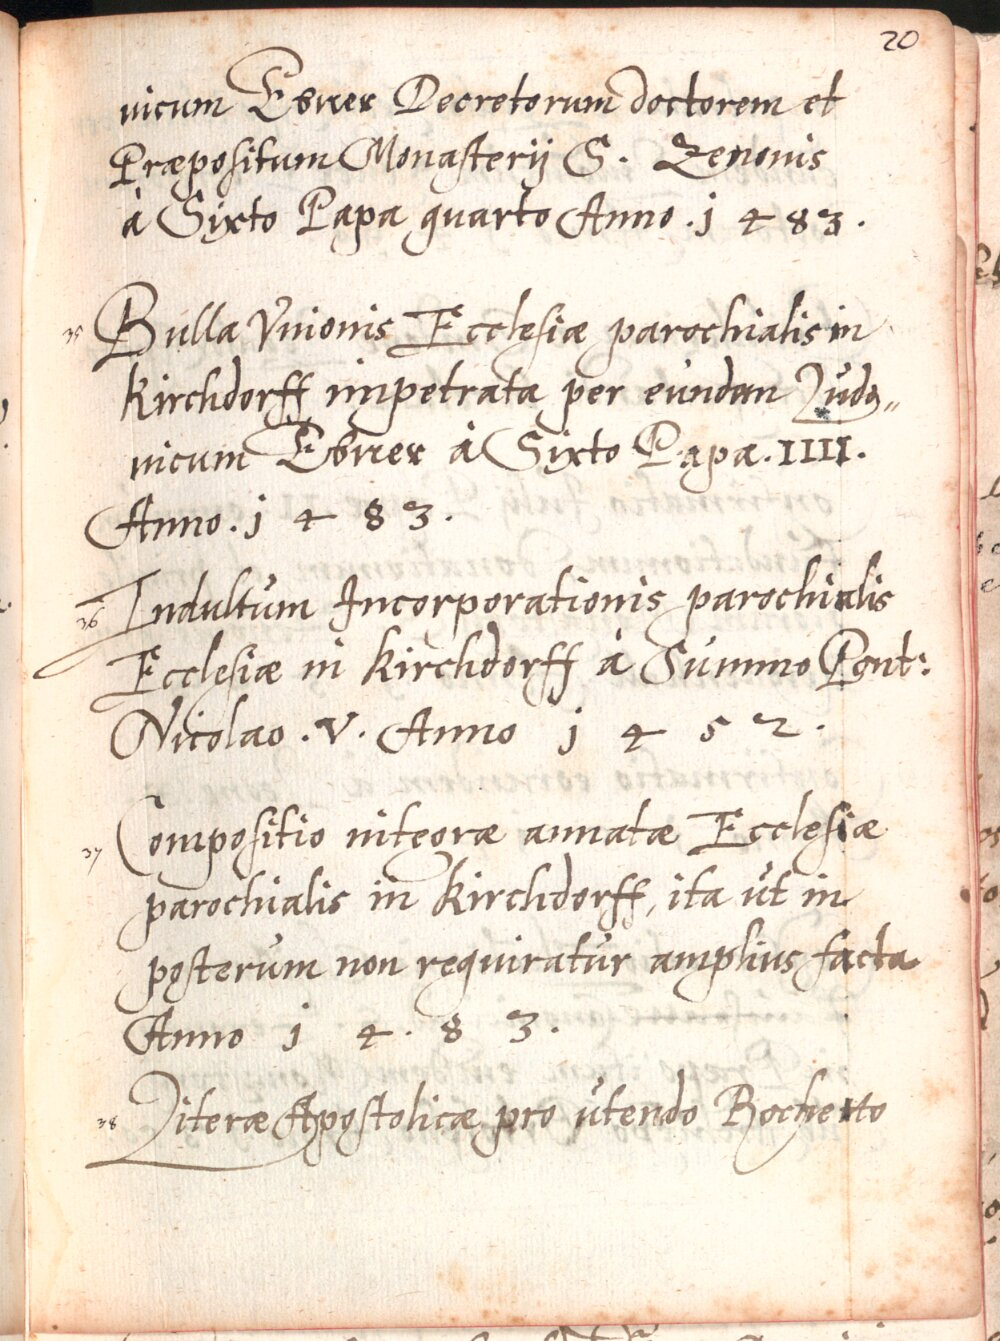 20
uicum Ebrrer Decretorum doctorem et
Præpositum Monasterij S. Zenonis
à Sixto Papa quarto Anno . 1 4 83 .
35 Bulla Vnionis Ecclesiæ parochialis in
Kirchdorff impetrata per eundem Ludo„
uicum Ebrrer à Sixto Papa . IIII.
Anno . 1 4 8 3 .
36 Indultum Incorporationis parochialis
Ecclesiæ in Kirchdorff à Summo Pont:
Nicolao . V. Anno 1 4 5 2 .
37 Compositio integræ annatæ Ecclesiæ
parochialis in Kirchdorff, ita ut in
posterum non requiratur amplius facta
Anno 1 4 . 8 3 .
38 Literæ Apostolicæ pro utendo Rocheto